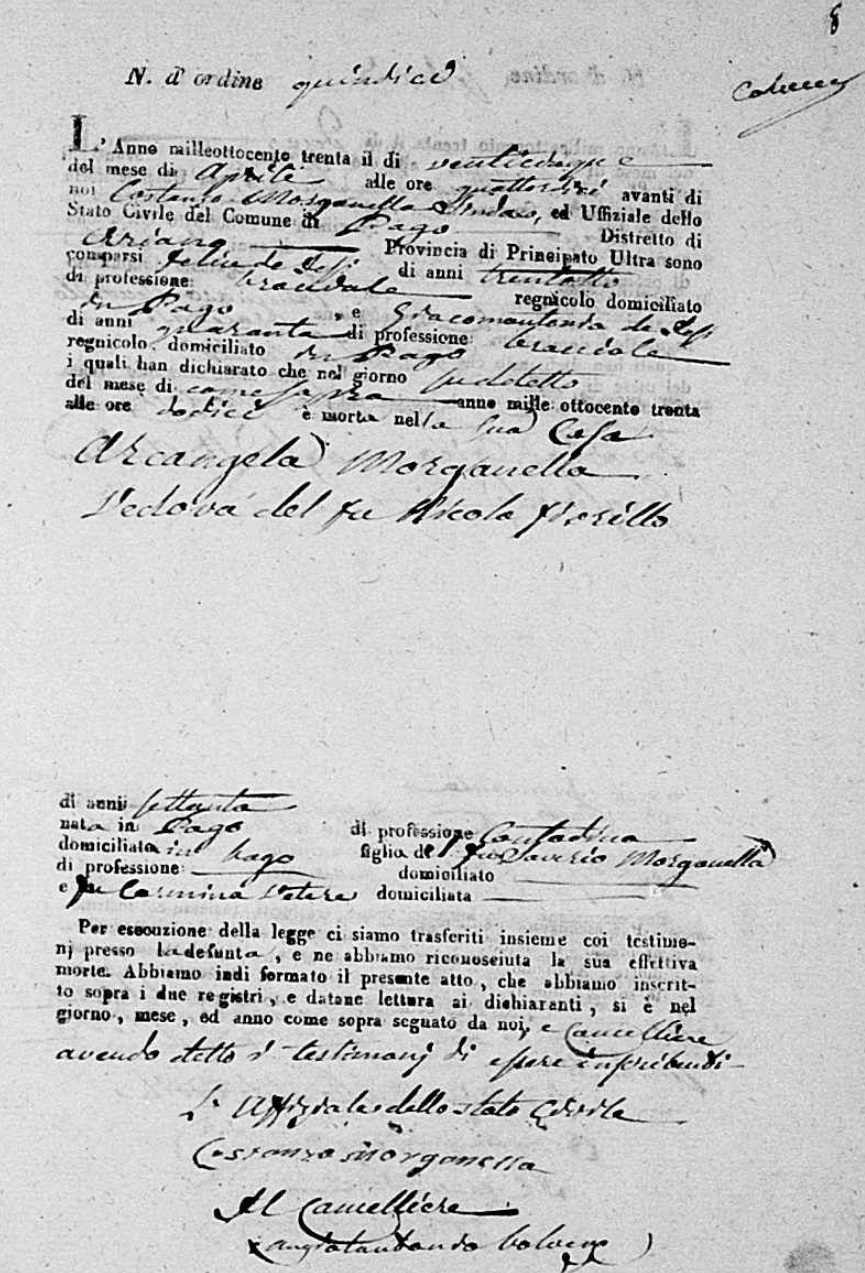 8
N. d'ordine quindici
L'Anno milleottocento trenta il di venticinque
del mese di Aprile alle ore quattordici avanti di
noi Costanzo Morganella Sindaco, ed Uffiziale dello
Stato Civile del Comune di Pago Distretto di
Ariano Provincia di Principato Ultra sono
comparsi Felice de di anni trentotto
di professione bracciale regnicolo domiciliato
in Pago, e Giacomantonio de
di anni quaranta di professione bracciale
regnicolo domiciliato in Pago
i quali han dichiarato che nel giorno sudetto
del mese di come sopra anno mille ottocento trenta
alle ore dodici è morta nella sua Casa
Arcangela Morganella
Vedova del fu Nicola Fiorillo
di anni settanta
nata in Pago di professione Contadina
domiciliata in Pago figlia del fu Saverio Morganella
di professione domiciliato
e fu Carmina Vetere domiciliata
Per esecuzione della legge ci siamo trasferiti insieme coi testimo-
nj presso la defunta, e ne abbiamo riconosciuta la sua effettiva
morte. Abbiamo indi formato il presente atto, che abbiamo inscrit-
to sopra i due registri, e datane lettura ai dichiaranti, si è nel
giorno, mese, ed anno come sopra segnato da noi, e Cancelliere
avendo detto i testimonj di essere inscribendi
L'Uffiziale dello stato Civile
Costanzo Morganella
Il Cancelliere